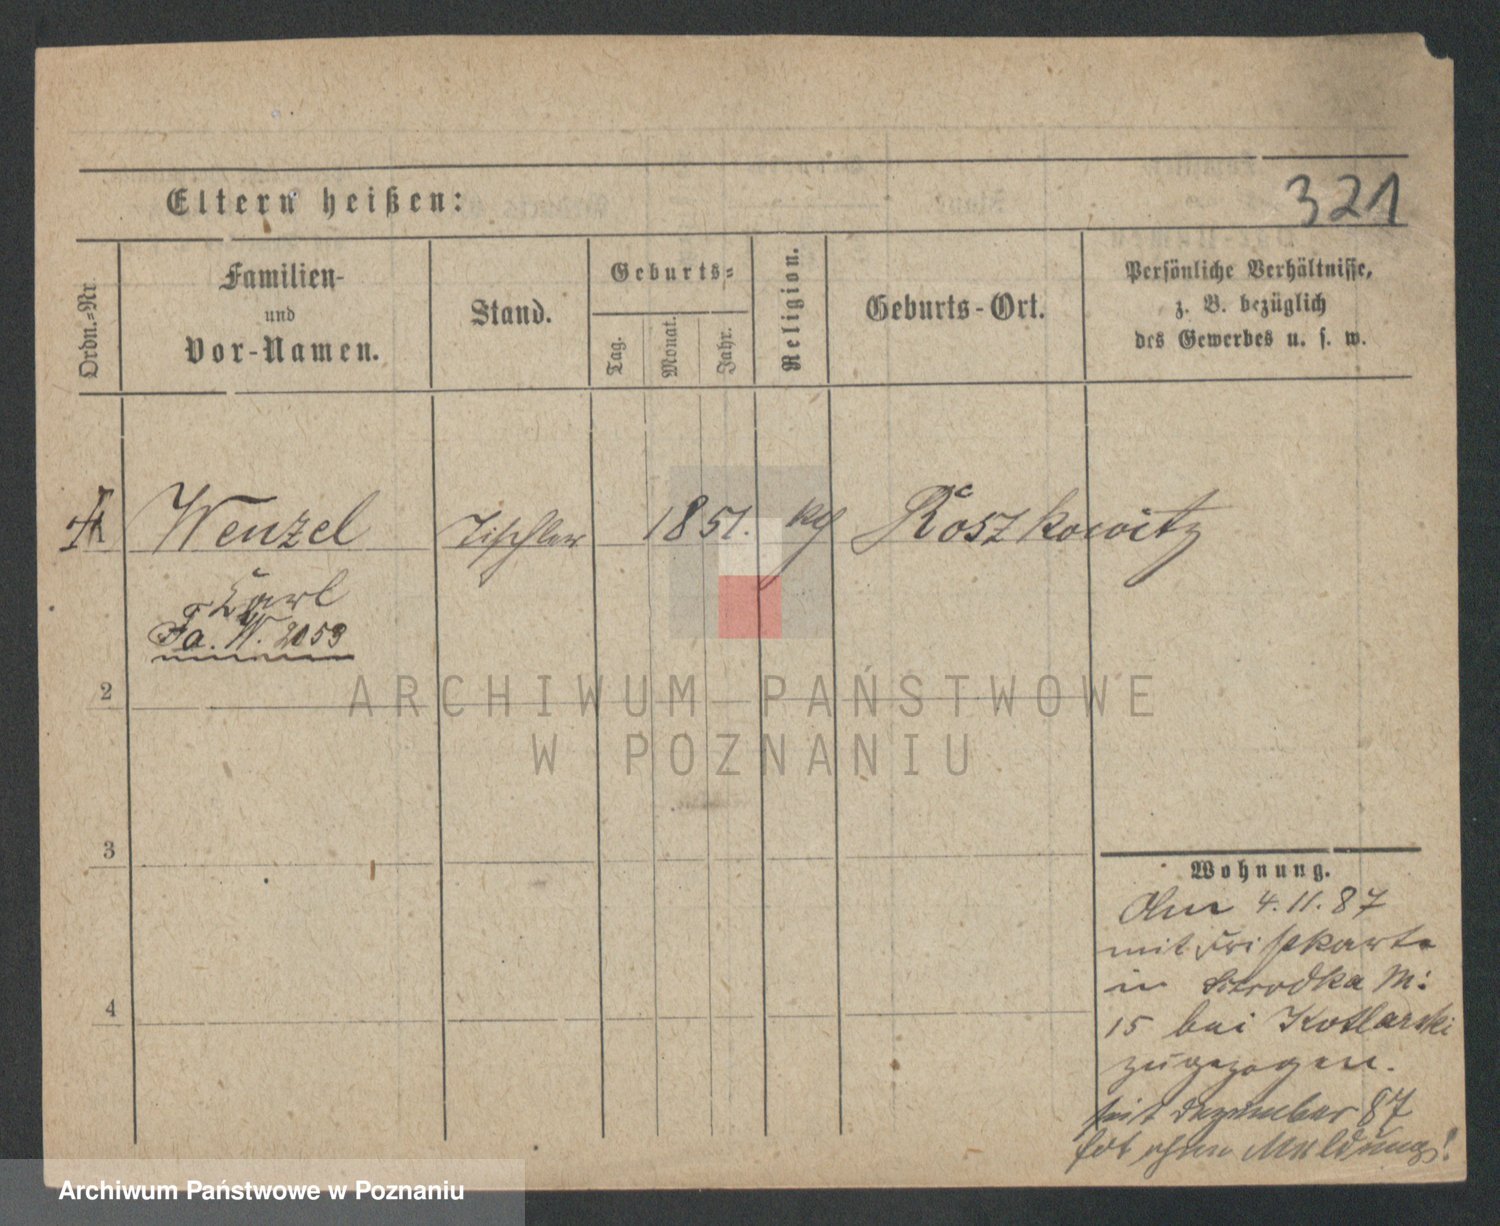 Eltern heißen:
321
Ordn.-Nr.
Familien-
und
Vor-Namen.
Stand.
Geburts-
Tag.
Monat.
Jahr.
Religion.
Geburts-Ort.
Persönliche Verhältnisse,
z. B. bezüglich
des Gewerbes u. s. w.
Wenzel
Tischler
1851.
Roszkowitz
Carl
Fa. W. 2053
2
3
4
Wohnung.
Am 4.11.87
mit
in Szrodka M:
15 bei Kotlarski
zugezogen.
seit Dezember 87
fort ohne Meldung!
ARCHIWUM PAŃSTWOWE
W POZNANIU
Archiwum Państwowe w Poznaniu